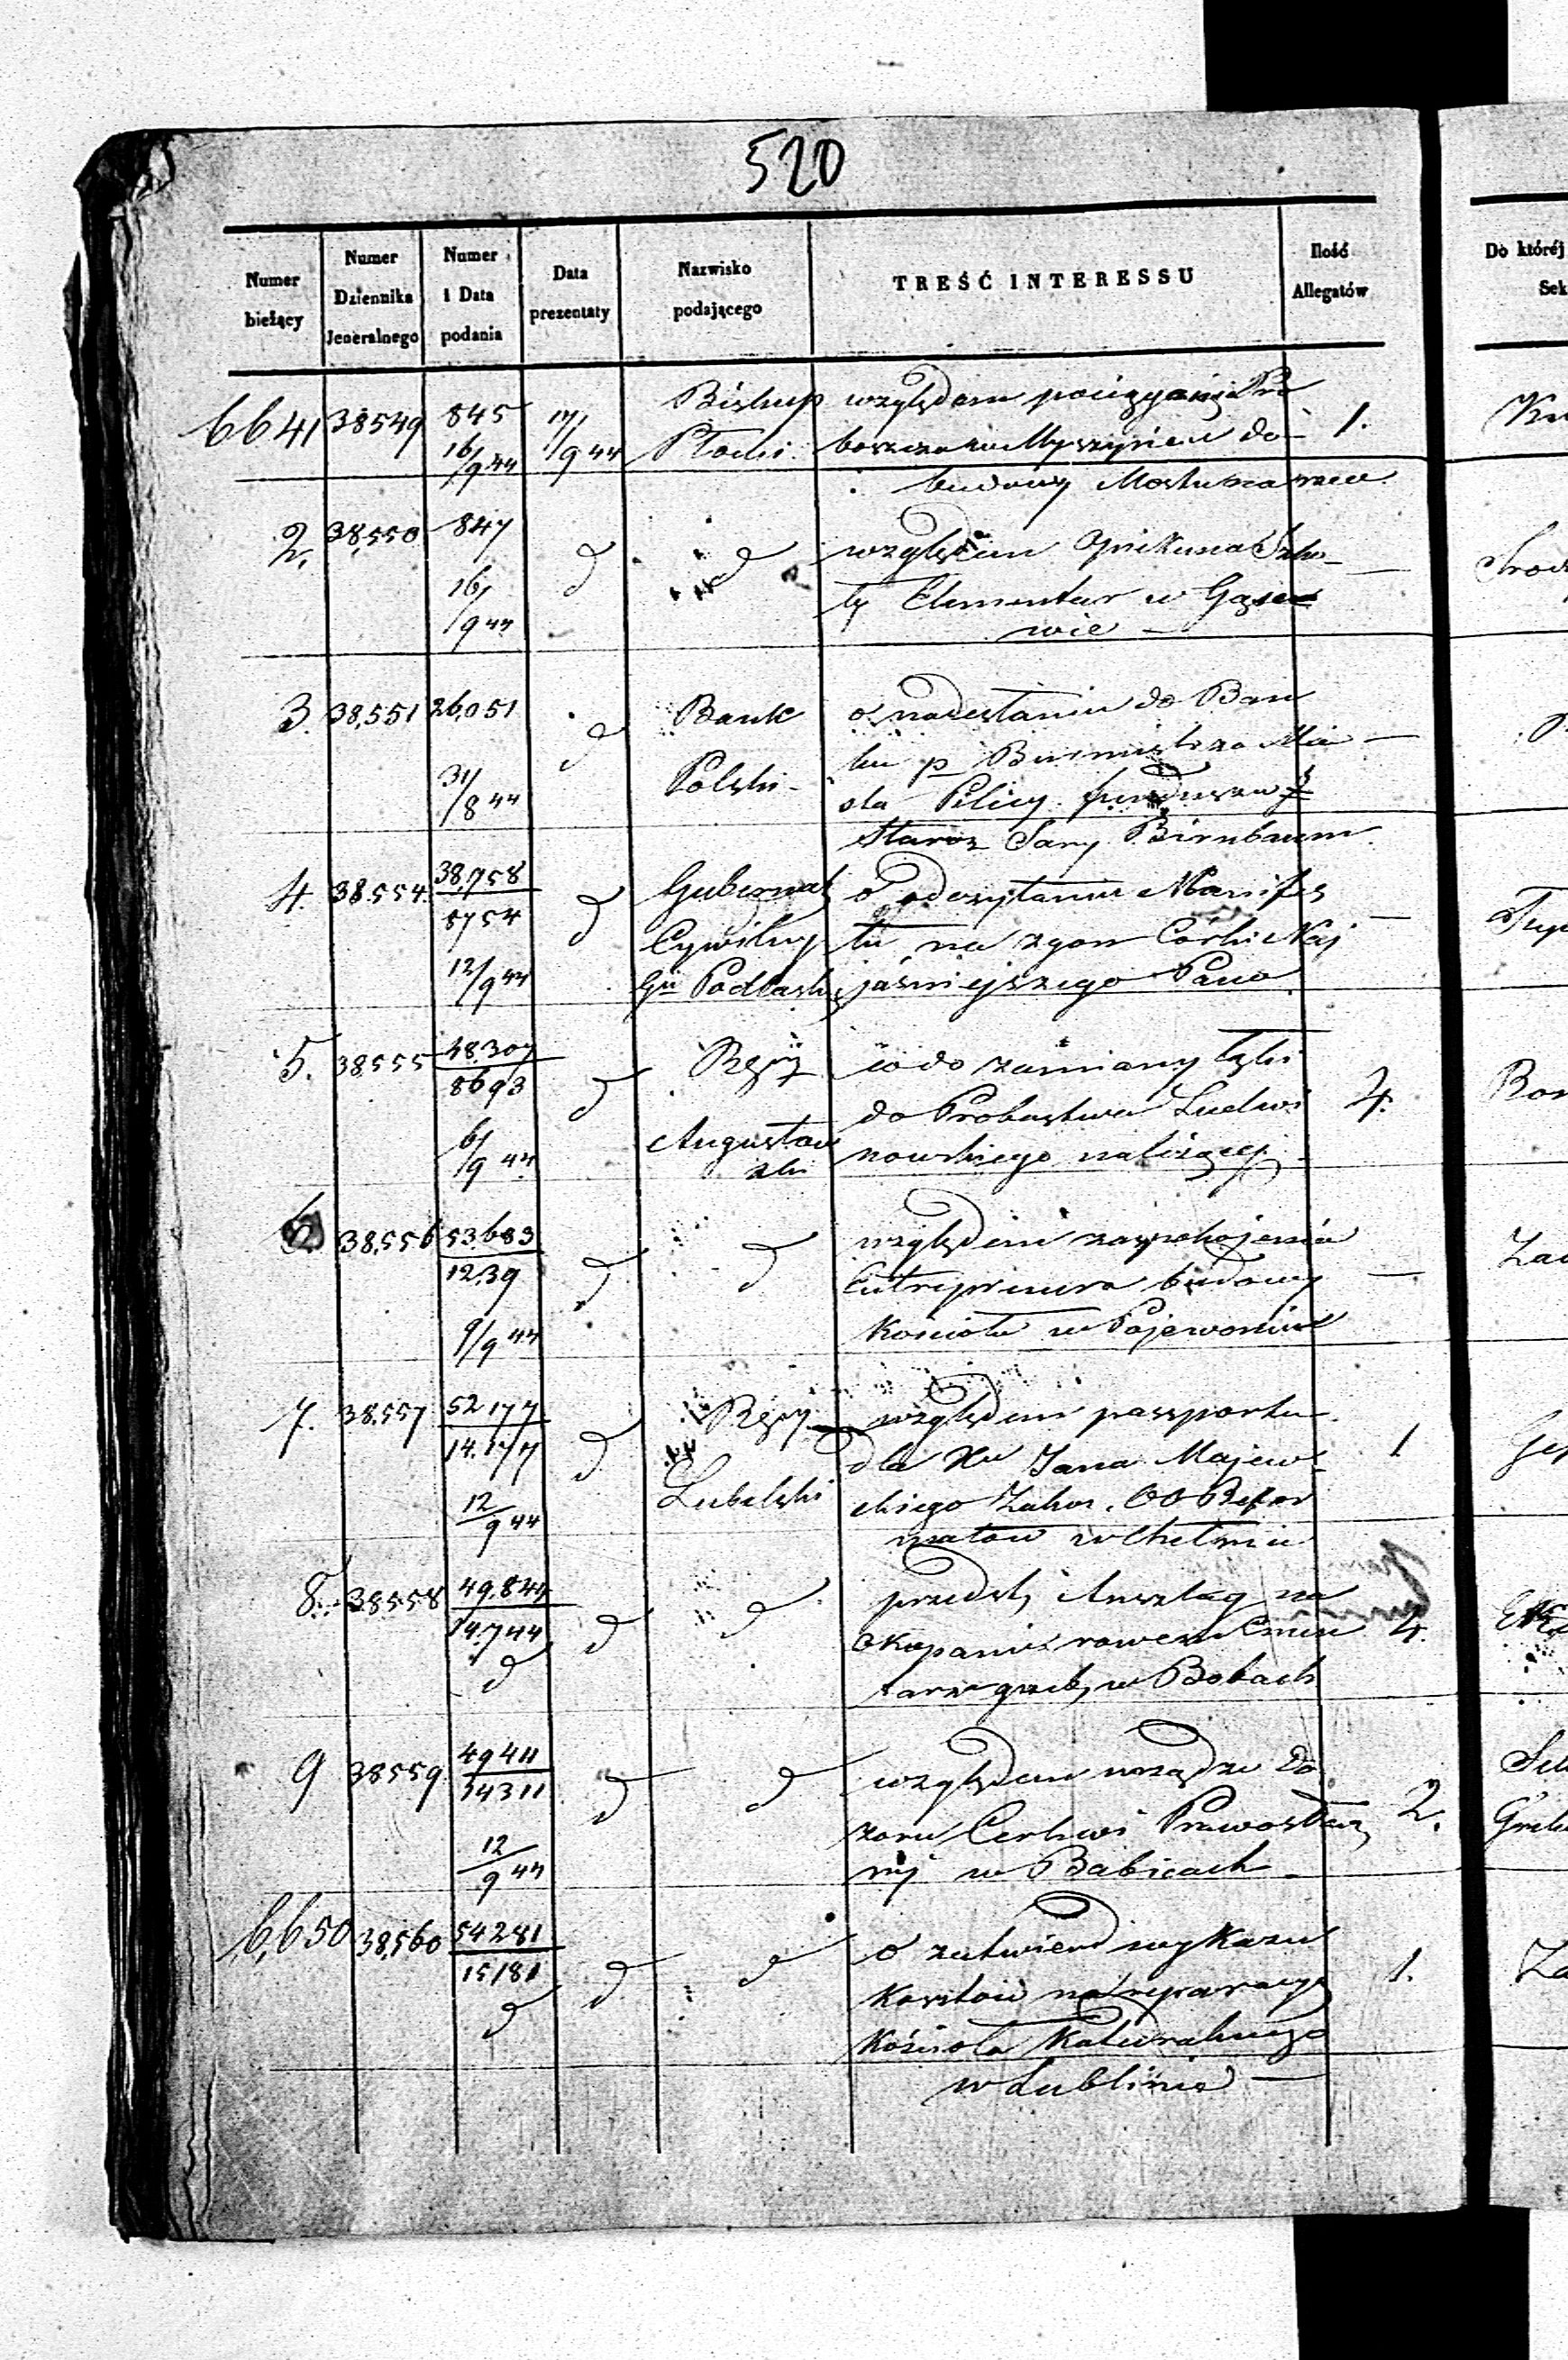 520
Numer bieżący | Numer Dziennika Jeneralnego | Numer i Data podania | Data prezentaty | Nazwisko podającego | TREŚĆ INTERESSU | Ilość Allegatów | Do któréj Sek
6641 | 38549 | 845 16/9 44 | 17/9 44 | Biskup Płocki | względem pociągania Pro
boszcza w Myszyńcu do | 1.
budowy Mostu na rzece
2. | 38,550 | 847 16/9 44 | d | d | względem Opiekuna Szko-
ły Elementar w Gąse
wie — | —
3. | 38,551 | 26,051 31/8 44 | d | Bank Polski - | o nadesłaniu do Ban
ku p Burmistrza Mia
sta Pilicy funduszu
Staroz Sary Birnbaum | —
4. | 38.554. | 38,758 8754 12/9 44 | d | Gubernat Cywilny Gu Podlaski | o odczytaniu Manifes
tu na zgon Córki Naj
jaśniejszego Pana | —
5. | 38555 | 48.307 8693 6/9 44 | d | Rząd Augustow ski | co do zamiany łąki
do Probostwa Ludwi
nowskiego należącej | 4.
6. | 38,556 | 53.683 12.39 9/9 44 | d | d | względem zaspokojenia
Entreprenera budowy
Kościoła w Pojewoniu | —
7. | 38.557 | 52 177 14.177 12/9 44 | d | Rząd Lubelski | względem paszportu
dla Xa Jana Majew-
skiego Zakon. OO Refor
matów w Chełmie | 1
8. | 38558 | 49.844 14.744 d | d | d | przedst, Anszlag na
Okopanie rowem Cmen
tarza grzeb, w Bobach | 4.
9 | 38559 | 49411 14311 12/9 44 | d | d | względem urządze Do
zoru Cerkwi Prawosław
nej w Babicach | 2.
6,650 | 38,560 | 54281 15181 d | d | d | o zatwierd wykazu
Kosztów na reparacyę
Kościoła Katedralnego
w Lublinie — | 1.